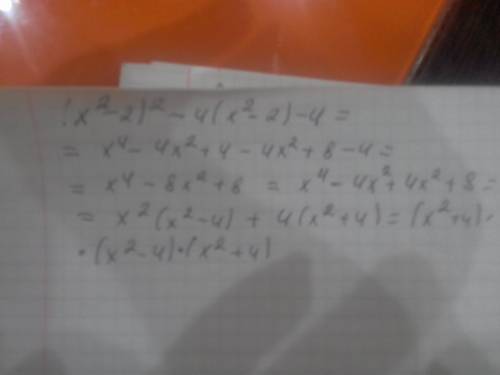 (x²-2)² - 4(x²-2)-4=
= x⁴ - 4x²+4-4x²+8-4=
= x⁴ - 8x²+8 = x⁴-4x²+4x²+8=
= x²(x²-4) + 4(x²+4)=(x²+4)·
·(x²-4)·(x²+4)